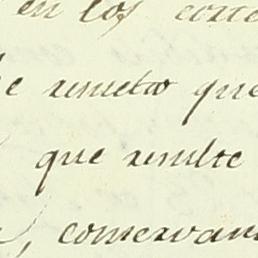 en los corte
e remeto que
que resulte
, conservan